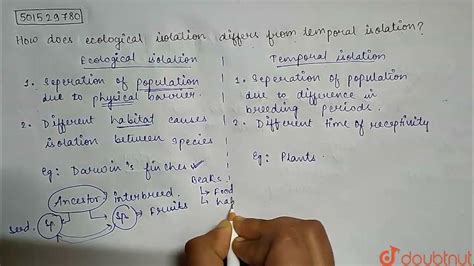 501529780
How does ecological isolation differs from temporal isolation?
Ecological isolation
1. Seperation of population
due to physical barrier.
2. Different habitat causes
isolation between species
Eg: Darwin's finches
Ancestor
interbreed.
seed.
Sp
Sp
Fruits
Beaks
Food
hab
Temporal isolation
1. Seperation of population
due to difference in
breeding periods.
2. Different time of receptivity
Eg: Plants.
doubtnut